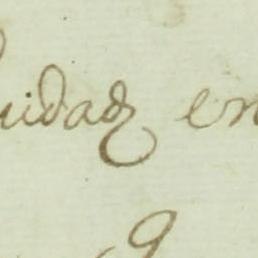 uidad en